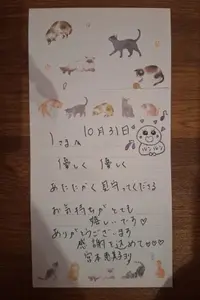 10月31日
優しく 優しく
あたたかく見守ってくださる
お気持ちがとても
嬉しいです♡
ありがとうございます
感謝を込めて♡♡♡